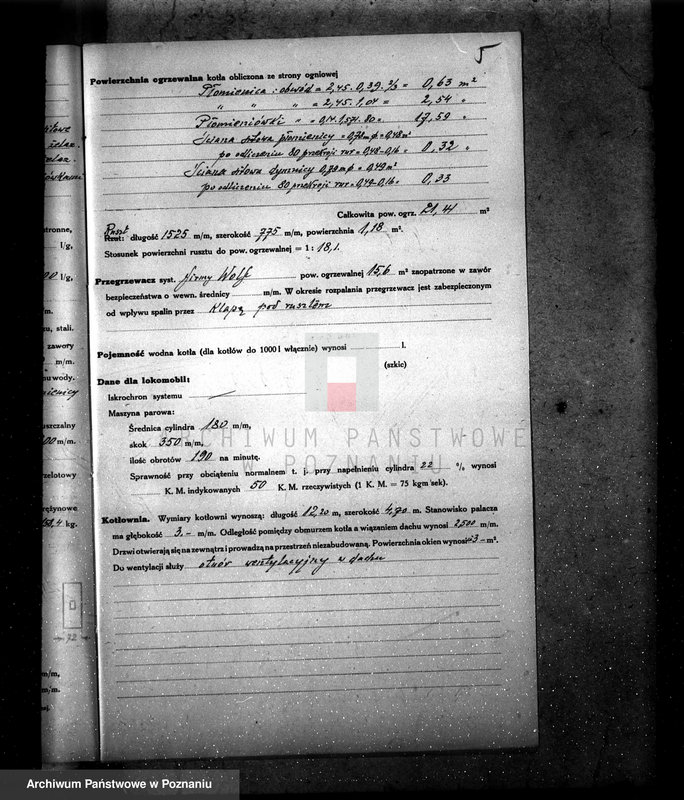 5
Powierzchnia ogrzewalna kotła obliczona ze strony ogniowej
Płomienica : obwód = 2,45. 0,39. 2/3 = 0,63 m²
" " " = 2,45. 1,04 = 2,54 "
Płomieniówki " = 0,14. 1,571. 80 = 17,59 "
Ściana sitowa płomienicy = 0,78 m φ = 0,48 m²
po odliczeniu 80 przekroji rur = 0,48-0,16 = 0,32 "
Ściana sitowa dymnicy 0,79 m φ = 0,49 m²
po odliczeniu 80 przekroji rur = 0,49-0,16 = 0,33
Całkowita pow. ogrz. 21,41 m²
Ruszt
długość 1525 m/m, szerokość 775 m/m, powierzchnia 1,18 m².
Stosunek powierzchni rusztu do pow. ogrzewalnej = 1 : 18,1.
Przegrzewacz syst. firmy Wolf pow. ogrzewalnej 15,6 m² zaopatrzone w zawór
bezpieczeństwa o wewn. średnicy m/m. W okresie rozpalania przegrzewacz jest zabezpieczonym
od wpływu spalin przez klapę pod rusztem
Pojemność wodna kotła (dla kotłów do 1000 l włącznie) wynosi l.
(szkic)
Dane dla lokomobil:
Iskrochron systemu
Maszyna parowa:
Średnica cylindra 180 m/m,
skok 350 m/m,
ilość obrotów 190 na minutę.
Sprawność przy obciążeniu normalnem t. j. przy napełnieniu cylindra 22 % wynosi
K. M. indykowanych 50 K. M. rzeczywistych (1 K. M. = 75 kgm/sek).
Kotłownia. Wymiary kotłowni wynoszą: długość 12,20 m, szerokość 4,90 m. Stanowisko palacza
ma głębokość 3.- m/m. Odległość pomiędzy obmurzem kotła a wiązaniem dachu wynosi 2500 m/m.
Drzwi otwierają się na zewnątrz i prowadzą na przestrzeń niezabudowaną. Powierzchnia okien wynosi 3- m².
Do wentylacji służy otwór wentylacyjny w dachu
ARCHIWUM PAŃSTWOWE
W POZNANIU
Archiwum Państwowe w Poznaniu